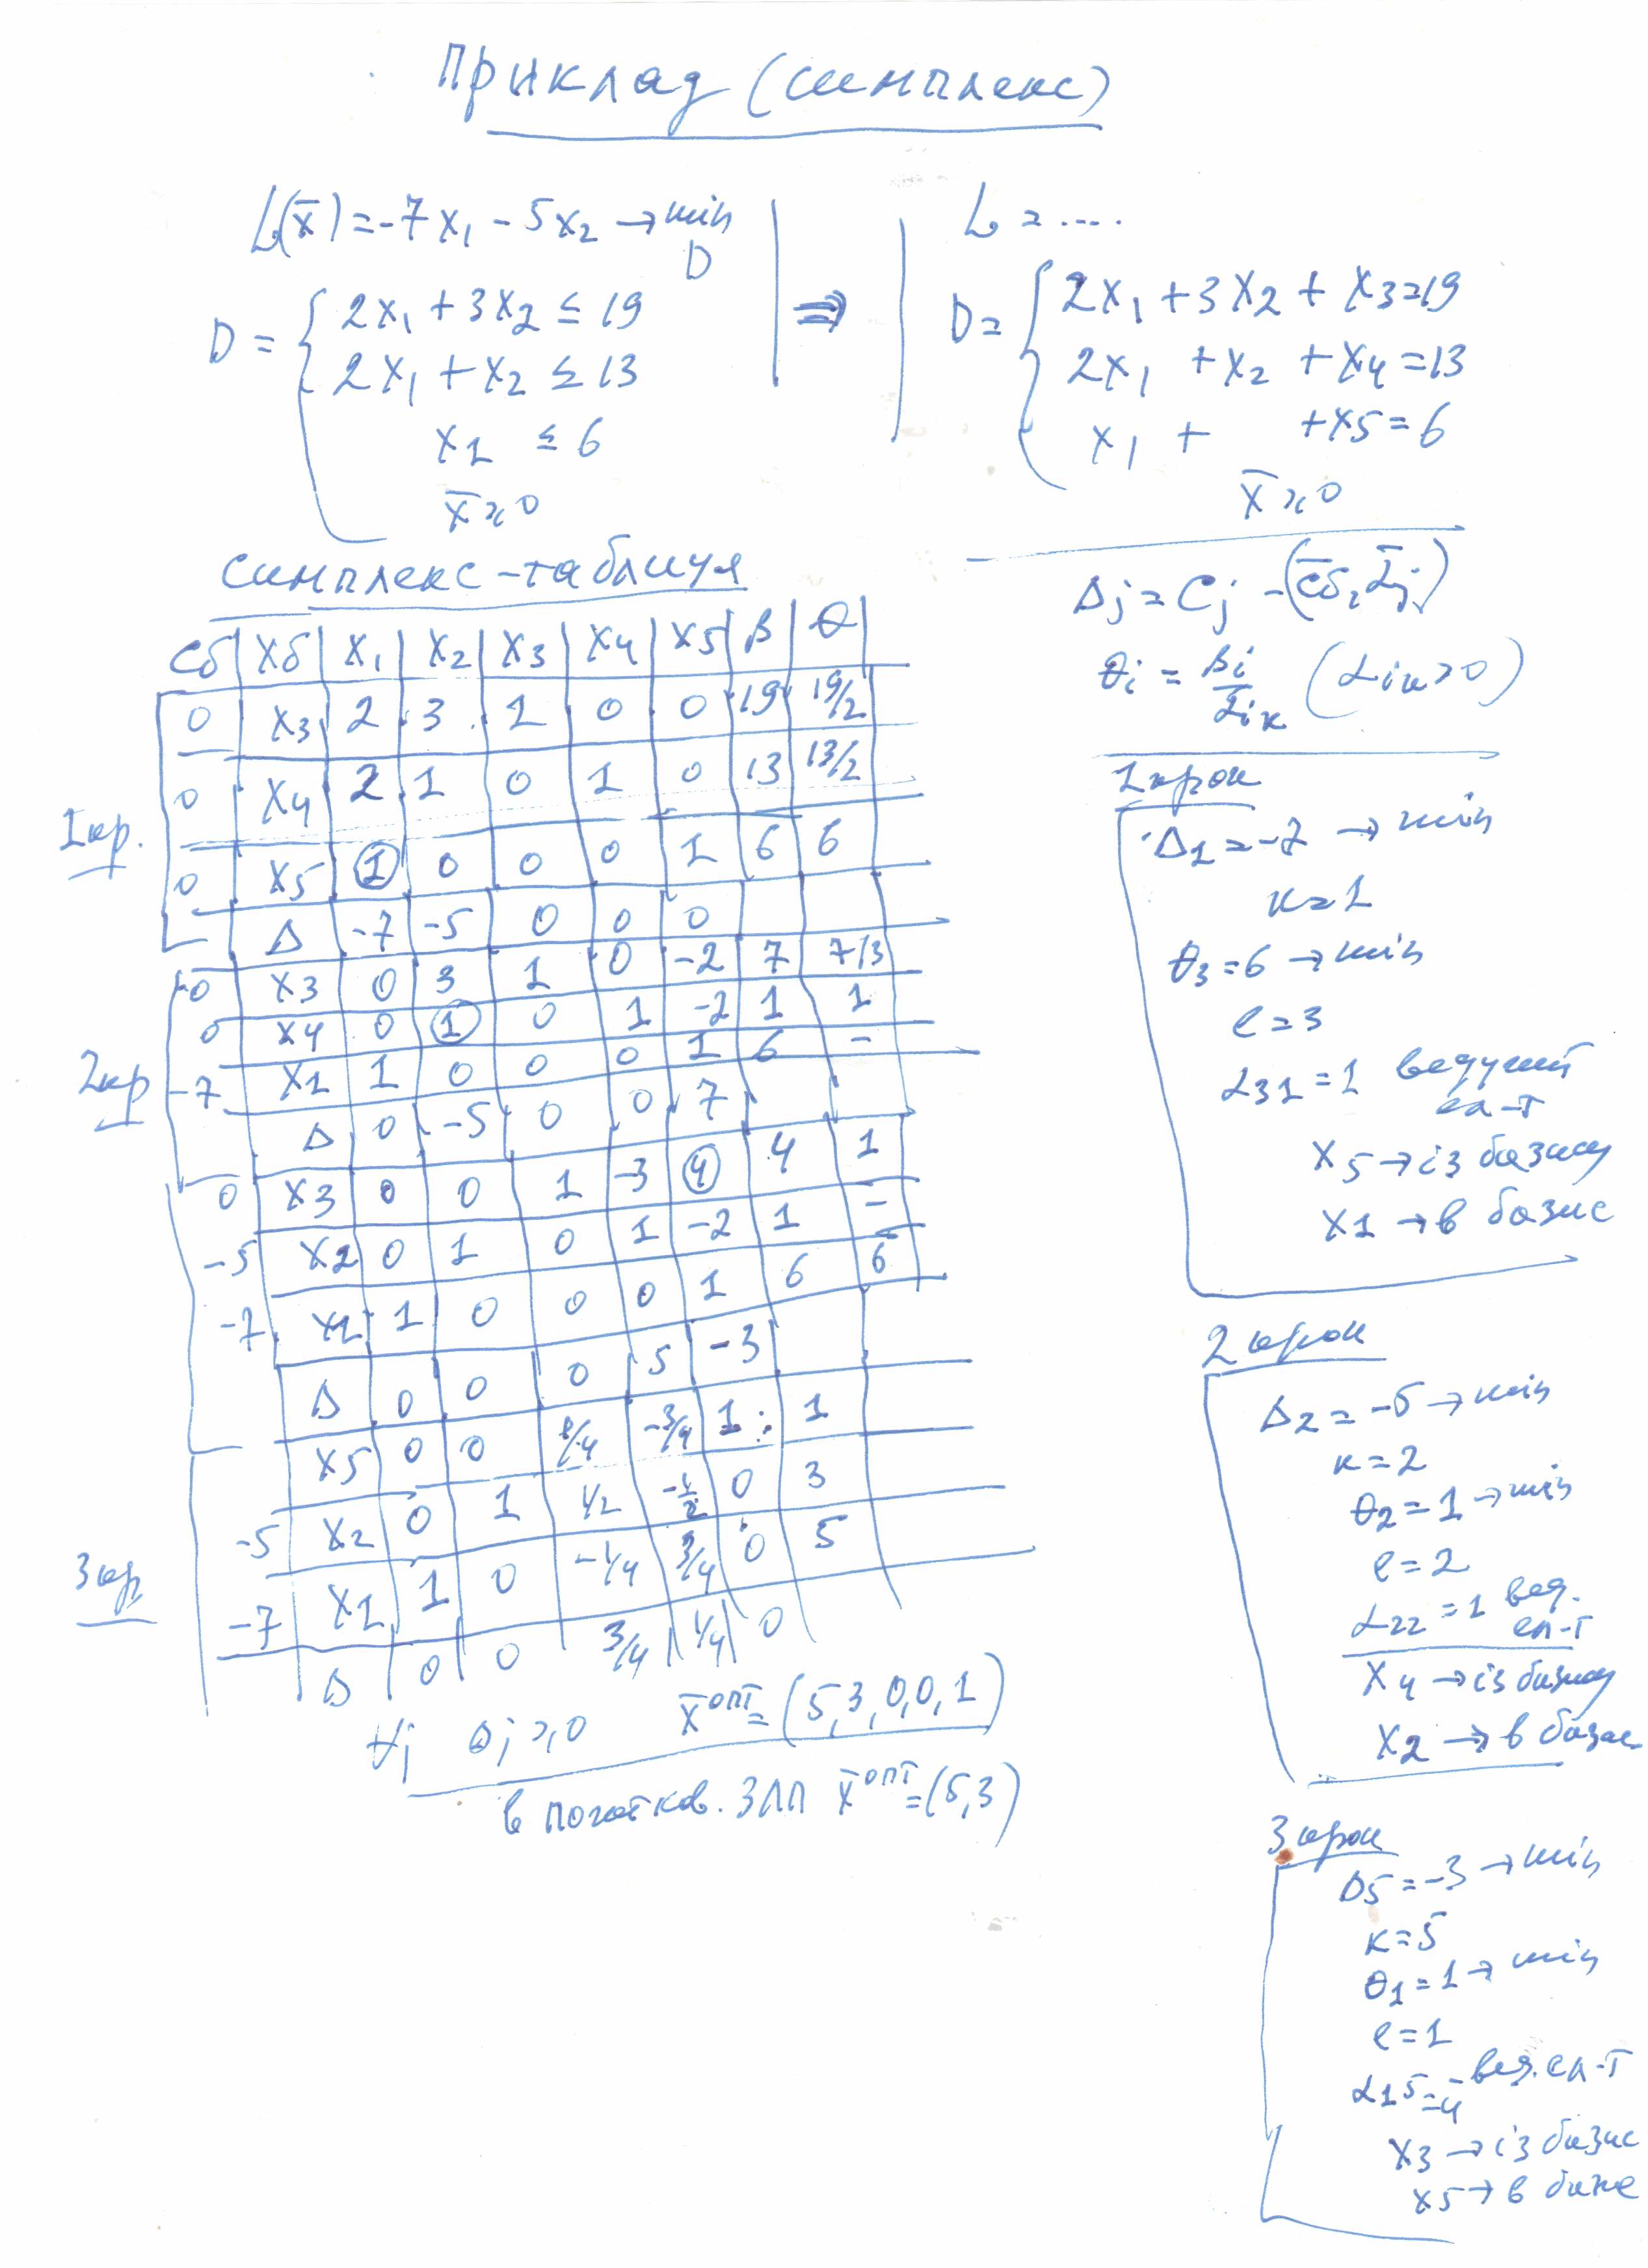 Приклад (симплекс)
L(x̄) = -7x₁ - 5x₂ → min
D
D = { 2x₁ + 3x₂ ≤ 19
2x₁ + x₂ ≤ 13
x₁ ≤ 6
x̄ ≥ 0
⇒
L = ....
D = { 2x₁ + 3x₂ + x₃ = 19
2x₁ + x₂ + x₄ = 13
x₁ + + x₅ = 6
x̄ ≥ 0
Симплекс-таблиця
Cб | Xб | X₁ | X₂ | X₃ | X₄ | X₅ | β | θ
1 кр.
0 | X₃ | 2 | 3 | 1 | 0 | 0 | 19 | 19/2
0 | X₄ | 2 | 1 | 0 | 1 | 0 | 13 | 13/2
0 | X₅ | 1 | 0 | 0 | 0 | 1 | 6 | 6
Δ | -7 | -5 | 0 | 0 | 0
2 кр
0 | X₃ | 0 | 3 | 1 | 0 | -2 | 7 | 7/3
0 | X₄ | 0 | 1 | 0 | 1 | -2 | 1 | 1
-7 | X₁ | 1 | 0 | 0 | 0 | 1 | 6 | -
Δ | 0 | -5 | 0 | 0 | 7
0 | X₃ | 0 | 0 | 1 | -3 | 4 | 4 | 1
-5 | X₂ | 0 | 1 | 0 | 1 | -2 | 1 | -
-7 | X₁ | 1 | 0 | 0 | 0 | 1 | 6 | 6
Δ | 0 | 0 | 0 | 5 | -3
3 кр
X₅ | 0 | 0 | 1/4 | -3/4 | 1 | 1
-5 | X₂ | 0 | 1 | 1/2 | -1/2 | 0 | 3
-7 | X₁ | 1 | 0 | -1/4 | 3/4 | 0 | 5
Δ | 0 | 0 | 3/4 | 1/4 | 0
∀j Δj ≥ 0 x̄ᵒᵖᵗ = (5, 3, 0, 0, 1)
в початков. ЗЛП x̄ᵒᵖᵗ = (5, 3)
Δj = Cj - (c̄б, ᾱj)
θi = βi/αiк (αiк > 0)
1 крок
Δ₁ = -7 → min
к = 1
θ₃ = 6 → min
l = 3
α₃₁ = 1 ведучий
ел-т
X₅ → із базису
X₁ → в базис
2 крок
Δ₂ = -5 → min
к = 2
θ₂ = 1 → min
l = 2
α₂₂ = 1 вед.
ел-т
X₄ → із базису
X₂ → в базис
3 крок
Δ₅ = -3 → min
к = 5
θ₁ = 1 → min
l = 1
α₁₅ = 4 - вед. ел-т
X₃ → із базис
X₅ → в базис